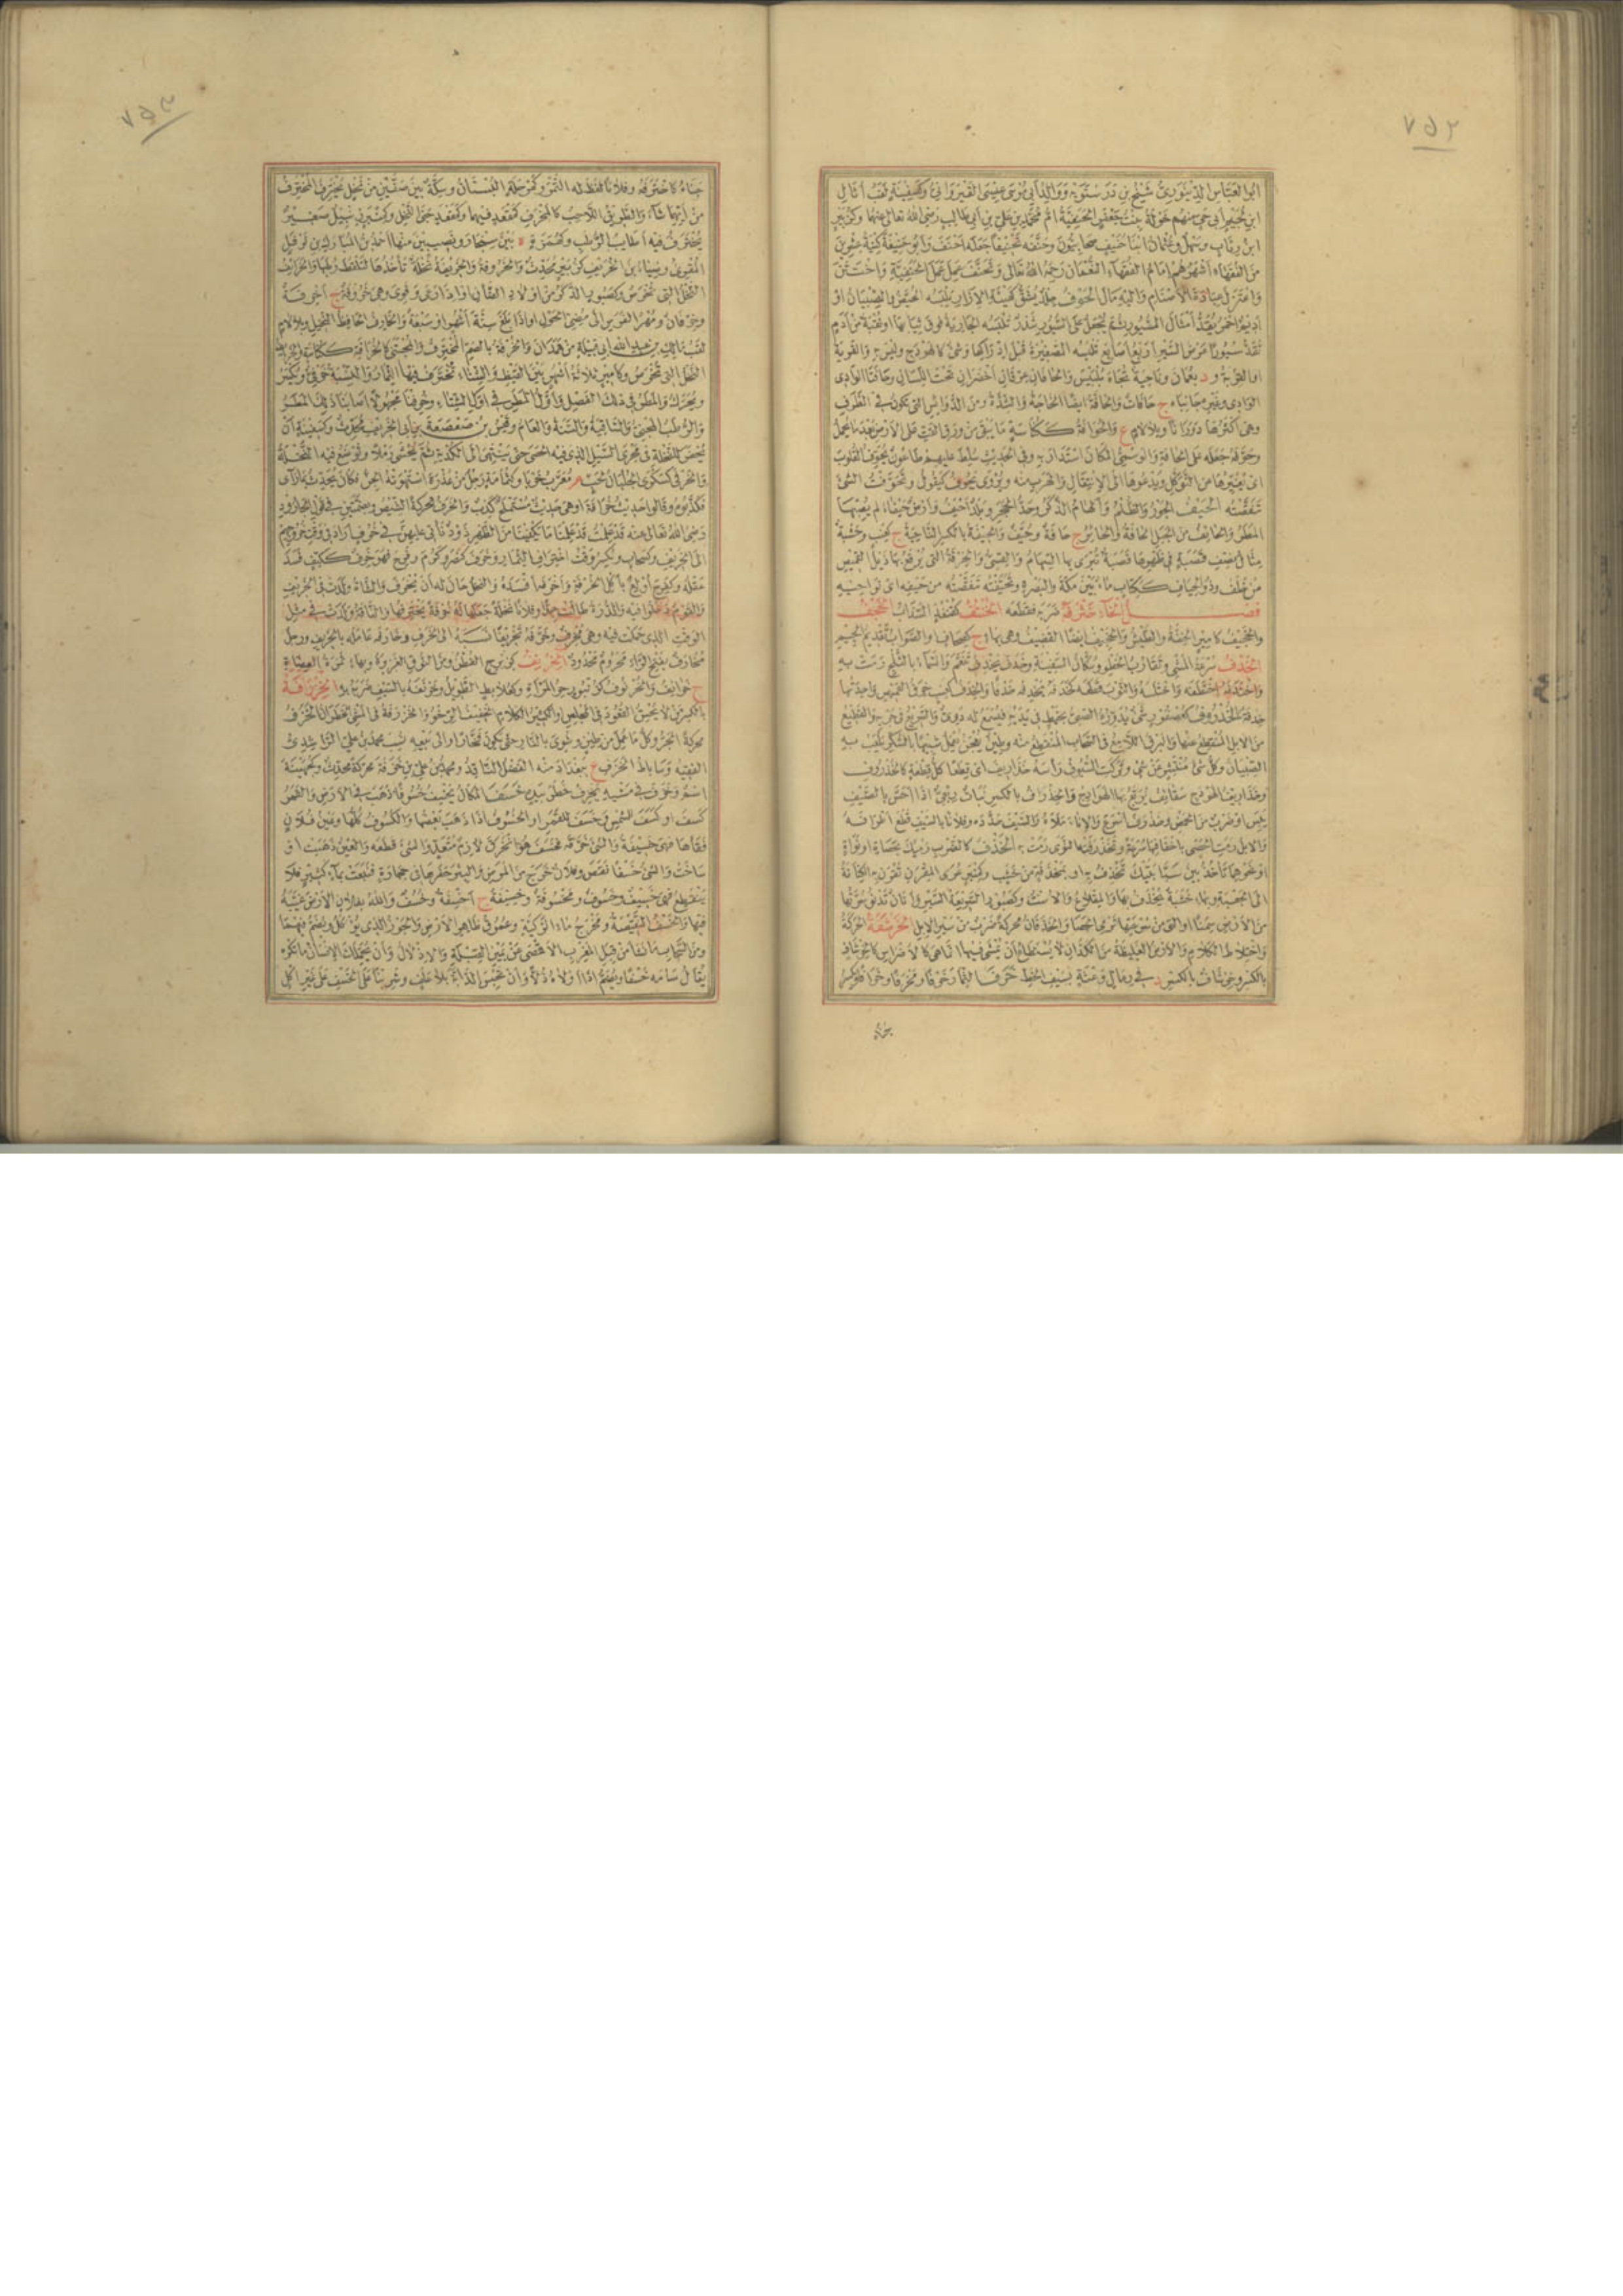 ٧٥٢
ابو العباس الدينوري شيخ بن درستويه ووالد ابي موسى عيسى القيرواني وكجهينة لقب اثال
ابن لجيم ابي حي منهم خولة بنت جعفر الحنفية ام محمد بن علي بن ابي طالب رضي الله تعالى عنهما وكزبير
ابن رئاب وسهل وعثمان ابنا حنيف صحابيون وحنفه تحنيفا جعله احنف وابو حنيفة كنية عشرين
من الفقهاء اشهرهم امام الفقهاء النعمان رحمه الله تعالى وتحنف عمل عمل الحنفية واختتن
واعتزل عبادة الاصنام واليه مال الحوف جلد يشق كهيئة الازار يلبسه الحيض والصبيان او
اديم احمر يقد امثال السيور ثم يجعل على السيور شذر تلبسه الجارية فوق ثيابها او نقبة من ادم
تقد سيورا عرض السير اربع اصابع تلبسه الصغيرة قبل ادراكها وشئ كالهودج وليس به والقرية
او القربة و د بعمان وناحية تجاه بلبيس والحافان عرقان اخضران تحت اللسان وحافتا الوادي
الوادي وغيره جانباه ج حافات والحافة ايضا الحاجة والشدة ومن الدوائس التي تكون في الطرف
وهي اكثرها دورانا وبلا لام ع والحوافة ككناسة ما يبقى من ورق القت على الارض بعد ما يحمل
وحوفه جعله على الحافة والوسمي المكان استدار به وفي الحديث سلط عليهم طاعون يحوف القلوب
اي يغيرها عن التوكل ويدعوها الى الانتقال والهرب منه ويروى يحوف كيقول وتحوفت الشئ
تنقصته الحيف الجور والظلم والهام الذكر وحد الحجر وبلد احيف وارض حيفاء لم يصبهما
المطر والحائف من الجبل الحافة والحائر ج حافة وحيف والحيفة بالكسر الناحية ج كعنب وخشبة
مثال نصف قصبة في ظهرها قصبة تبرى بها السهام والقسي والخرقة التي يرقع بها ذيل القميص
من خلف وذو الحياف ككتاب ماء بين مكة والبصرة وتحيفته تنقصته من حيفه اي نواحيه
فصل الخاء خترفه ضربه فقطعه الختف كقنفذ السذاب الخجف
والخجيف كامير الخفة والطيش والخجيف ايضا القضيف وهي بهاء ج كصحاف والصواب تقديم الجيم
الخدف سرعة المشي وتقارب الخطو وسكان السفينة وخدف يخدف تنعم والسماء بالثلج رمت به
واختدفه اختطفه واختلسه والثوب قطعه
خذفة الخذروف كعصفور شئ يدوره الصبي بخيط في يديه فيسمع له دوي والسريع في جريه والقطيع
من الابل المنقطع عنها والبرق اللامع في السحاب المنقطع منه وطين يعجن يعمل شبيها بالسكر يلعب به
الصبيان وكل شئ منتشر من شئ وتركت السيوف راسه خذاريف اي قطعا كل قطعة كالخذروف
وخذاريف الهودج سقائف يربع بها الهودج والخذراف بالكسر نبات ربعي اذا احس بالصيف
يبس او ضرب من الحمض وخذرف اسرع والاناء ملأه والسيف حدده وفلانا بالسيف قطع اطرافه
والابل رمت الحصى باخفافها سرعة وتخذرفت النوى رمت به الخذف كالضرب رميك بحصاة او نواة
او نحوهما تاخذ بين سبابتيك تخذف به او بمخذفة من خشب وكمنبر عرى المقرن تقرن به الكنانة
الى الجعبة وبهاء خشبة يخذف بها والمقلاع والاست وكصبور السريعة السير واتان تدنو سرتها
من الارض سمنا او التي من سرعتها ترمي الحصا والخذفان محركة ضرب من سير الابل الخرشفة الحركة
واختلاط الكلام والارض الغليظة من الكذان لا يستطاع ان يمشى فيها انما هي كالاضراس كالخرشاف
بالكسر وخرشاف بالكسر د في رمال وعثة بسيف الخط خرف الثمار خرفا ومخرفا وخرافا ويكسر
جناه
٧٥٣
جناه كاخترفه وفلانا لقط له التمر وكمرحلة البستان وسكة بين صفين من نخل يخترف المخترف
من ايهما شاء والطريق اللاحب كالمخرف كمقعد فيهما وكمقعد جنى النخل وكمنبر زنبيل صغير
يخترف فيه اطايب الرطب وكهمزة ة بين سنجار ونصيبين منها احمد بن المبارك بن نوفل
المقرئ وضياء بن الخريف كزبير محدث والخروفة والخريفة نخلة تاخذها لتلقط رطبها والخرائف
النخل التي تخرص وكصبور الذكر من اولاد الضأن او اذا رعى وقوي وهي خروفة ج اخرفة
وخرفان ومهر الفرس الى مضي الحول او اذا بلغ ستة اشهر او سبعة والخارف حافظ النخل وبلا لام
لقب مالك بن عبد الله ابي قبيلة من همدان والخرفة بالضم المخترف والمجتنى كالخرافة ككناسة والخرائف
النخل التي تخرص وكامير ثلاثة اشهر بين القيظ والشتاء تخترف فيها الثمار والنسبة خرفي ويكسر
ويحرك والمطر في ذلك الفصل او اول المطر في اول الشتاء وخرفنا مجهولا اصابنا ذلك المطر
والرطب المجني والساقية والسنة والعام وقيس بن صعصعة بن ابي الخريف محدث وكسفينة ان
يحفر للنخلة في مجرى السيل الذي فيه الحصى حتى ينتهي الى الكدية ثم يحشى رملا وتوضع فيه النخلة
والخرفى كسكرى الجلبان لحب م معرب خربا وكثمامة رجل من عذرة استهوته الجن فكان يحدث بما رأى
فكذبوه وقالوا حديث خرافة او هي حديث مستملح كذب والخرف محركة الشيص وبضمتين في قول الجارود
رضي الله تعالى عنه قد علمت قد علمنا ما يكفينا من الظهر ذود نأتي عليهن في خرف اراد في وقت خروجهم
الى الخريف وكسحاب ويكسر وقت اختراف الثمار وخرف كنصر وكرم وفرح فهو خرف ككتف فسد
عقله وكفرح اولع باكل الخرفة واخرفه افسده والنخل حان له ان يخرف والشاة ولدت في الخريف
والقوم دخلوا فيه والذرة طالت جدا وفلانا نخلة جعلها له خرفة يخترفها والناقة ولدت في مثل
الوقت الذي حملت فيه وهي مخرف وخرفه تخريفا نسبه الى الخرف وخارفه عامله بالخريف ورجل
مخارف بفتح الراء محروم محدود الخرنيف كزبرج القطن ومن النوق الغزيرة وبهاء ثمرة العضاه
ج خرانف والخرنوف كزنبور حر المرأة وخرنفه بالسيف ضربه به الخزرافة
بالكسر من لا يحسن القعود في المجلس او الكثير الكلام الخفيف او الرخو والخزرفة في المشي الخطران الخزف
محركة الجر وكل ما عمل من طين وشوي بالنار حتى يكون فخارا والى بيعه نسب محمد بن علي الراشدي
الفقيه وساباط الخزف ع ببغداد منه الفضل الشاقد ومحمد بن علي بن خزفة محركة محدث وكجهينة
اسم وخزف في مشيه يخزف خطر بيده خسف المكان يخسف خسوفا ذهب في الارض والقمر
كسف او كسف للشمس وخسف للقمر او الخسوف اذا ذهب بعضهما والكسوف كلهما وعين فلان
فقأها فهي خسيفة والشئ خرقه فخسف هو انخرق لازم متعد والشئ قطعه والعين ذهبت او
ساخت والشئ خسفا نقص وفلان خرج من المرض والبئر حفرها في حجارة فنبعت بماء كثير فلا
ينقطع فهي خسيف وخسوف ومخسوفة وخسيفة ج اخسفة وخسف والله بفلان الارض غيبه
فيها والخسف النقيصة ومخرج ماء الركية وعموق ظاهر الارض والجوز الذي يؤكل ويضم فيهما
ومن السحاب ما نشأ من قبل المغرب الاقصى عن يمين القبلة والاذلال وان يحملك الانسان ما تكره
يقال سامه خسفا ويضم اذا اولاه ذلا وان تحبس الدابة بلا علف وشربنا على الخسف على غير اكل